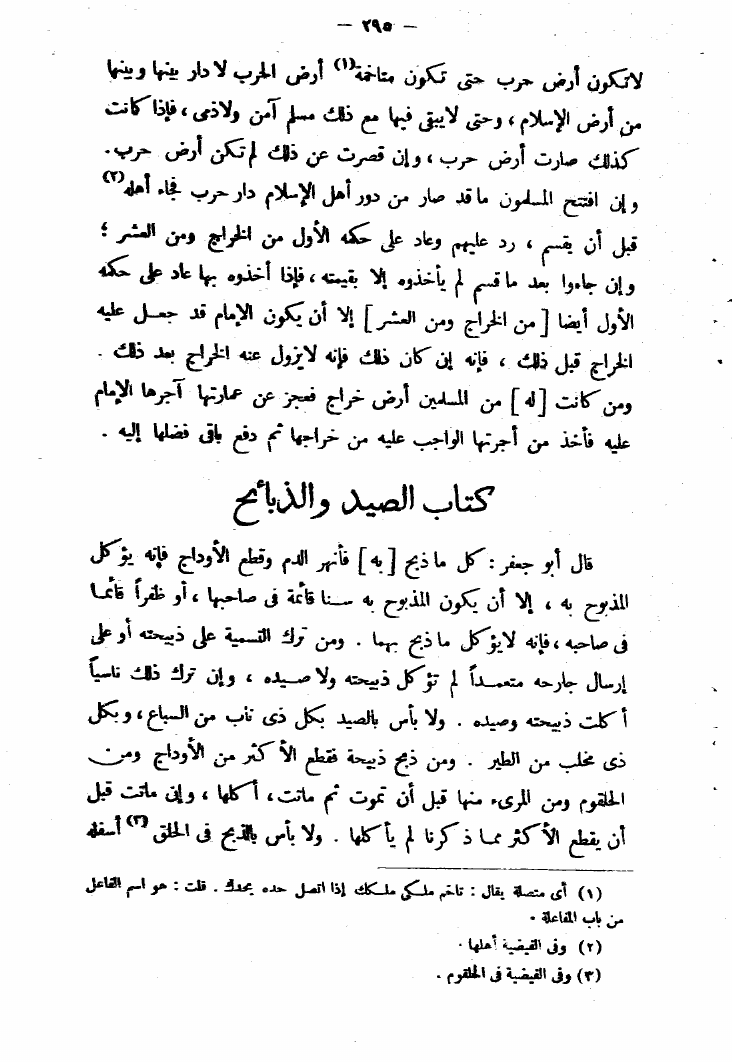 — ٢٩٥ —
لاتكون أرض حرب حتى تكون متاخمة(١) أرض الحرب لا دار بينها وبينها
من أرض الإسلام ، وحتى لايبقى فيها مع ذلك مسلم آمن ولاذمى ، فإذا كانت
كذلك صارت أرض حرب ، وإن قصرت عن ذلك لم تكن أرض حرب .
وإن افتتح المسلمون ما قد صار من دور أهل الإسلام دار حرب فجاء أهله(٢)
قبل أن يقسم ، رد عليهم وعاد على حكمه الأول من الخراج ومن العشر ؛
وإن جاءوا بعد ما قسم لم يأخذوه إلا بقيمته ، فإذا أخذوه بها عاد على حكمه
الأول أيضا [ من الخراج ومن العشر ] إلا أن يكون الإمام قد جعل عليه
الخراج قبل ذلك ، فإنه إن كان ذلك فإنه لايزول عنه الخراج بعد ذلك .
ومن كانت [ له ] من المسلمين أرض خراج فعجز عن عمارتها آجرها الإمام
عليه فأخذ من أجرتها الواجب عليه من خراجها ثم دفع باقى فضلها إليه .
كتاب الصيد والذبائح
قال أبو جعفر : كل ما ذبح [ به ] فأنهر الدم وقطع الأوداج فإنه يؤكل
المذبوح به ، إلا أن يكون المذبوح به سنا قائمة فى صاحبها ، أو ظفراً قائما
فى صاحبه ، فإنه لايؤكل ما ذبح بهما . ومن ترك التسمية على ذبيحته أو على
إرسال جارحه متعمداً لم تؤكل ذبيحته ولا صيده ، وإن ترك ذلك ناسياً
أكلت ذبيحته وصيده . ولا بأس بالصيد بكل ذى ناب من السباع ، وبكل
ذى مخلب من الطير . ومن ذبح ذبيحة فقطع الأكثر من الأوداج ومن
الحلقوم ومن المرىء منها قبل أن تموت ثم ماتت ، أكلها ، وإن ماتت قبل
أن يقطع الأكثر مما ذكرنا لم يأكلها . ولا بأس بالذبح فى الحلق(٣) أسفله
(١) أى متصلة يقال : تاخم ملكى ملكك إذا اتصل حده بحدك . قلت : هو اسم الفاعل
من باب المفاعلة .
(٢) وفى الفيضية أهلها .
(٣) وفى الفيضية فى الحلقوم .